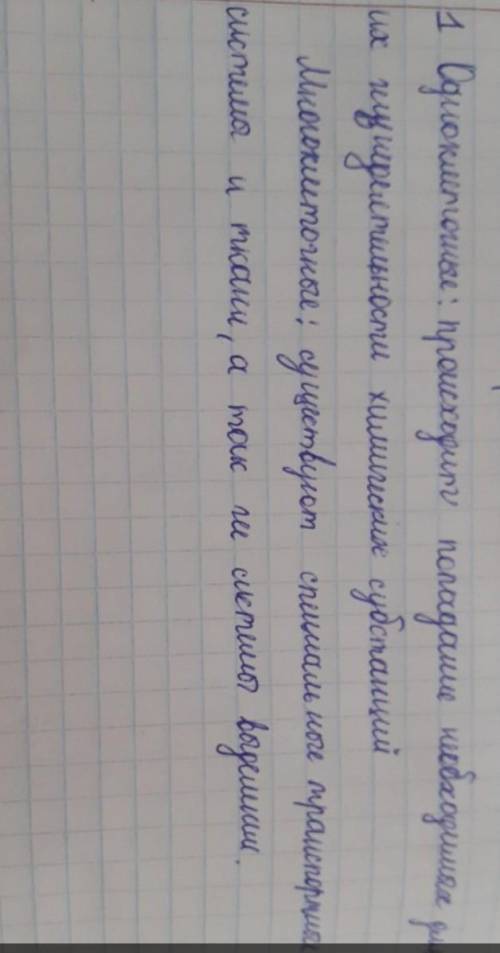 1 Одноклеточные: происходит попадание необходимых для
их жизнедеятельности химических субстанций
Многоклеточные; существуют специальные транспортные
системы и ткани, а так же системы выделения.